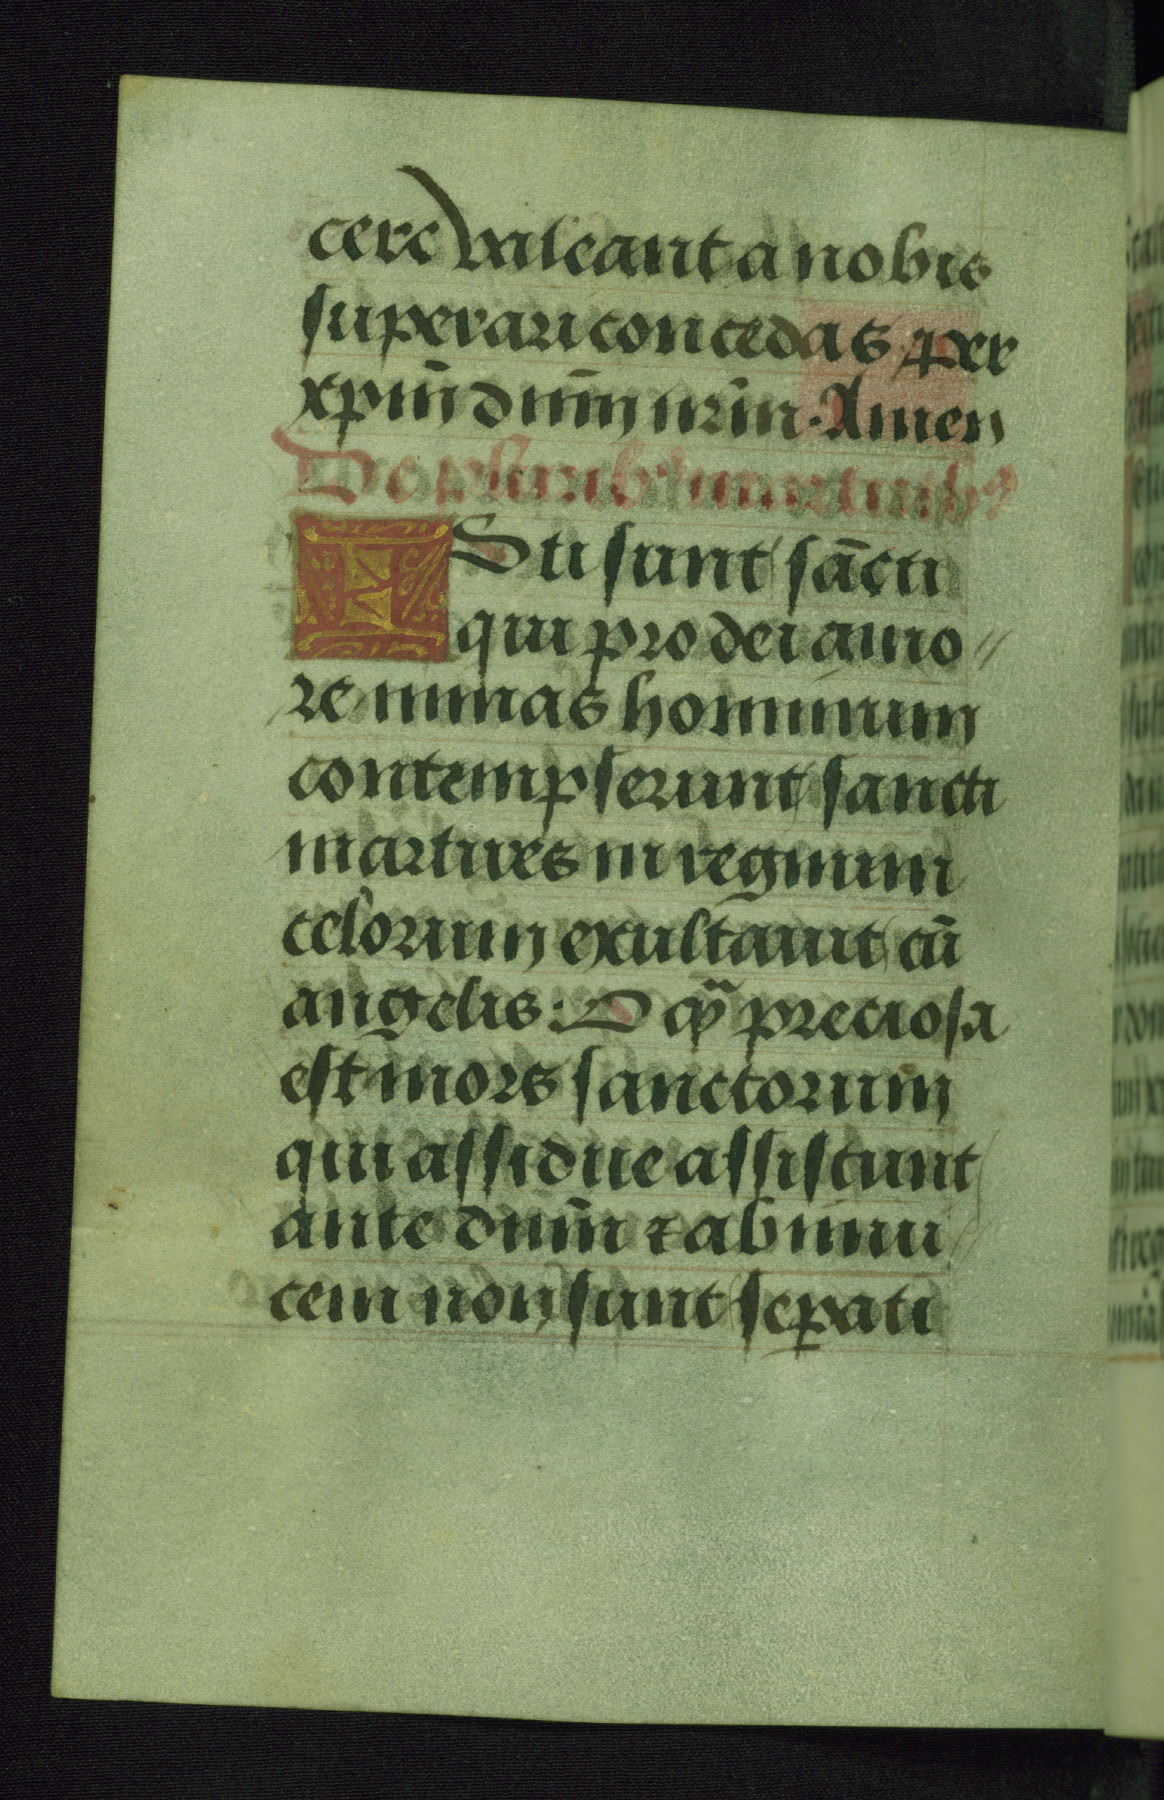 cere valeant a nobis
superari concedas. per
xpm̄ dnm̄ nr̄m. Amen
De plurib9 martirib9
ISti sunt sācti
qui pro dei amo//
re minas hominum
contempserunt sancti
martires in regnum
celorum exultant cū
angelis: O qꝫ preciosa
est mors sanctorum
qui assidue assistunt
ante dnm̄ ⁊ ab inui//
cem non sunt seꝑati